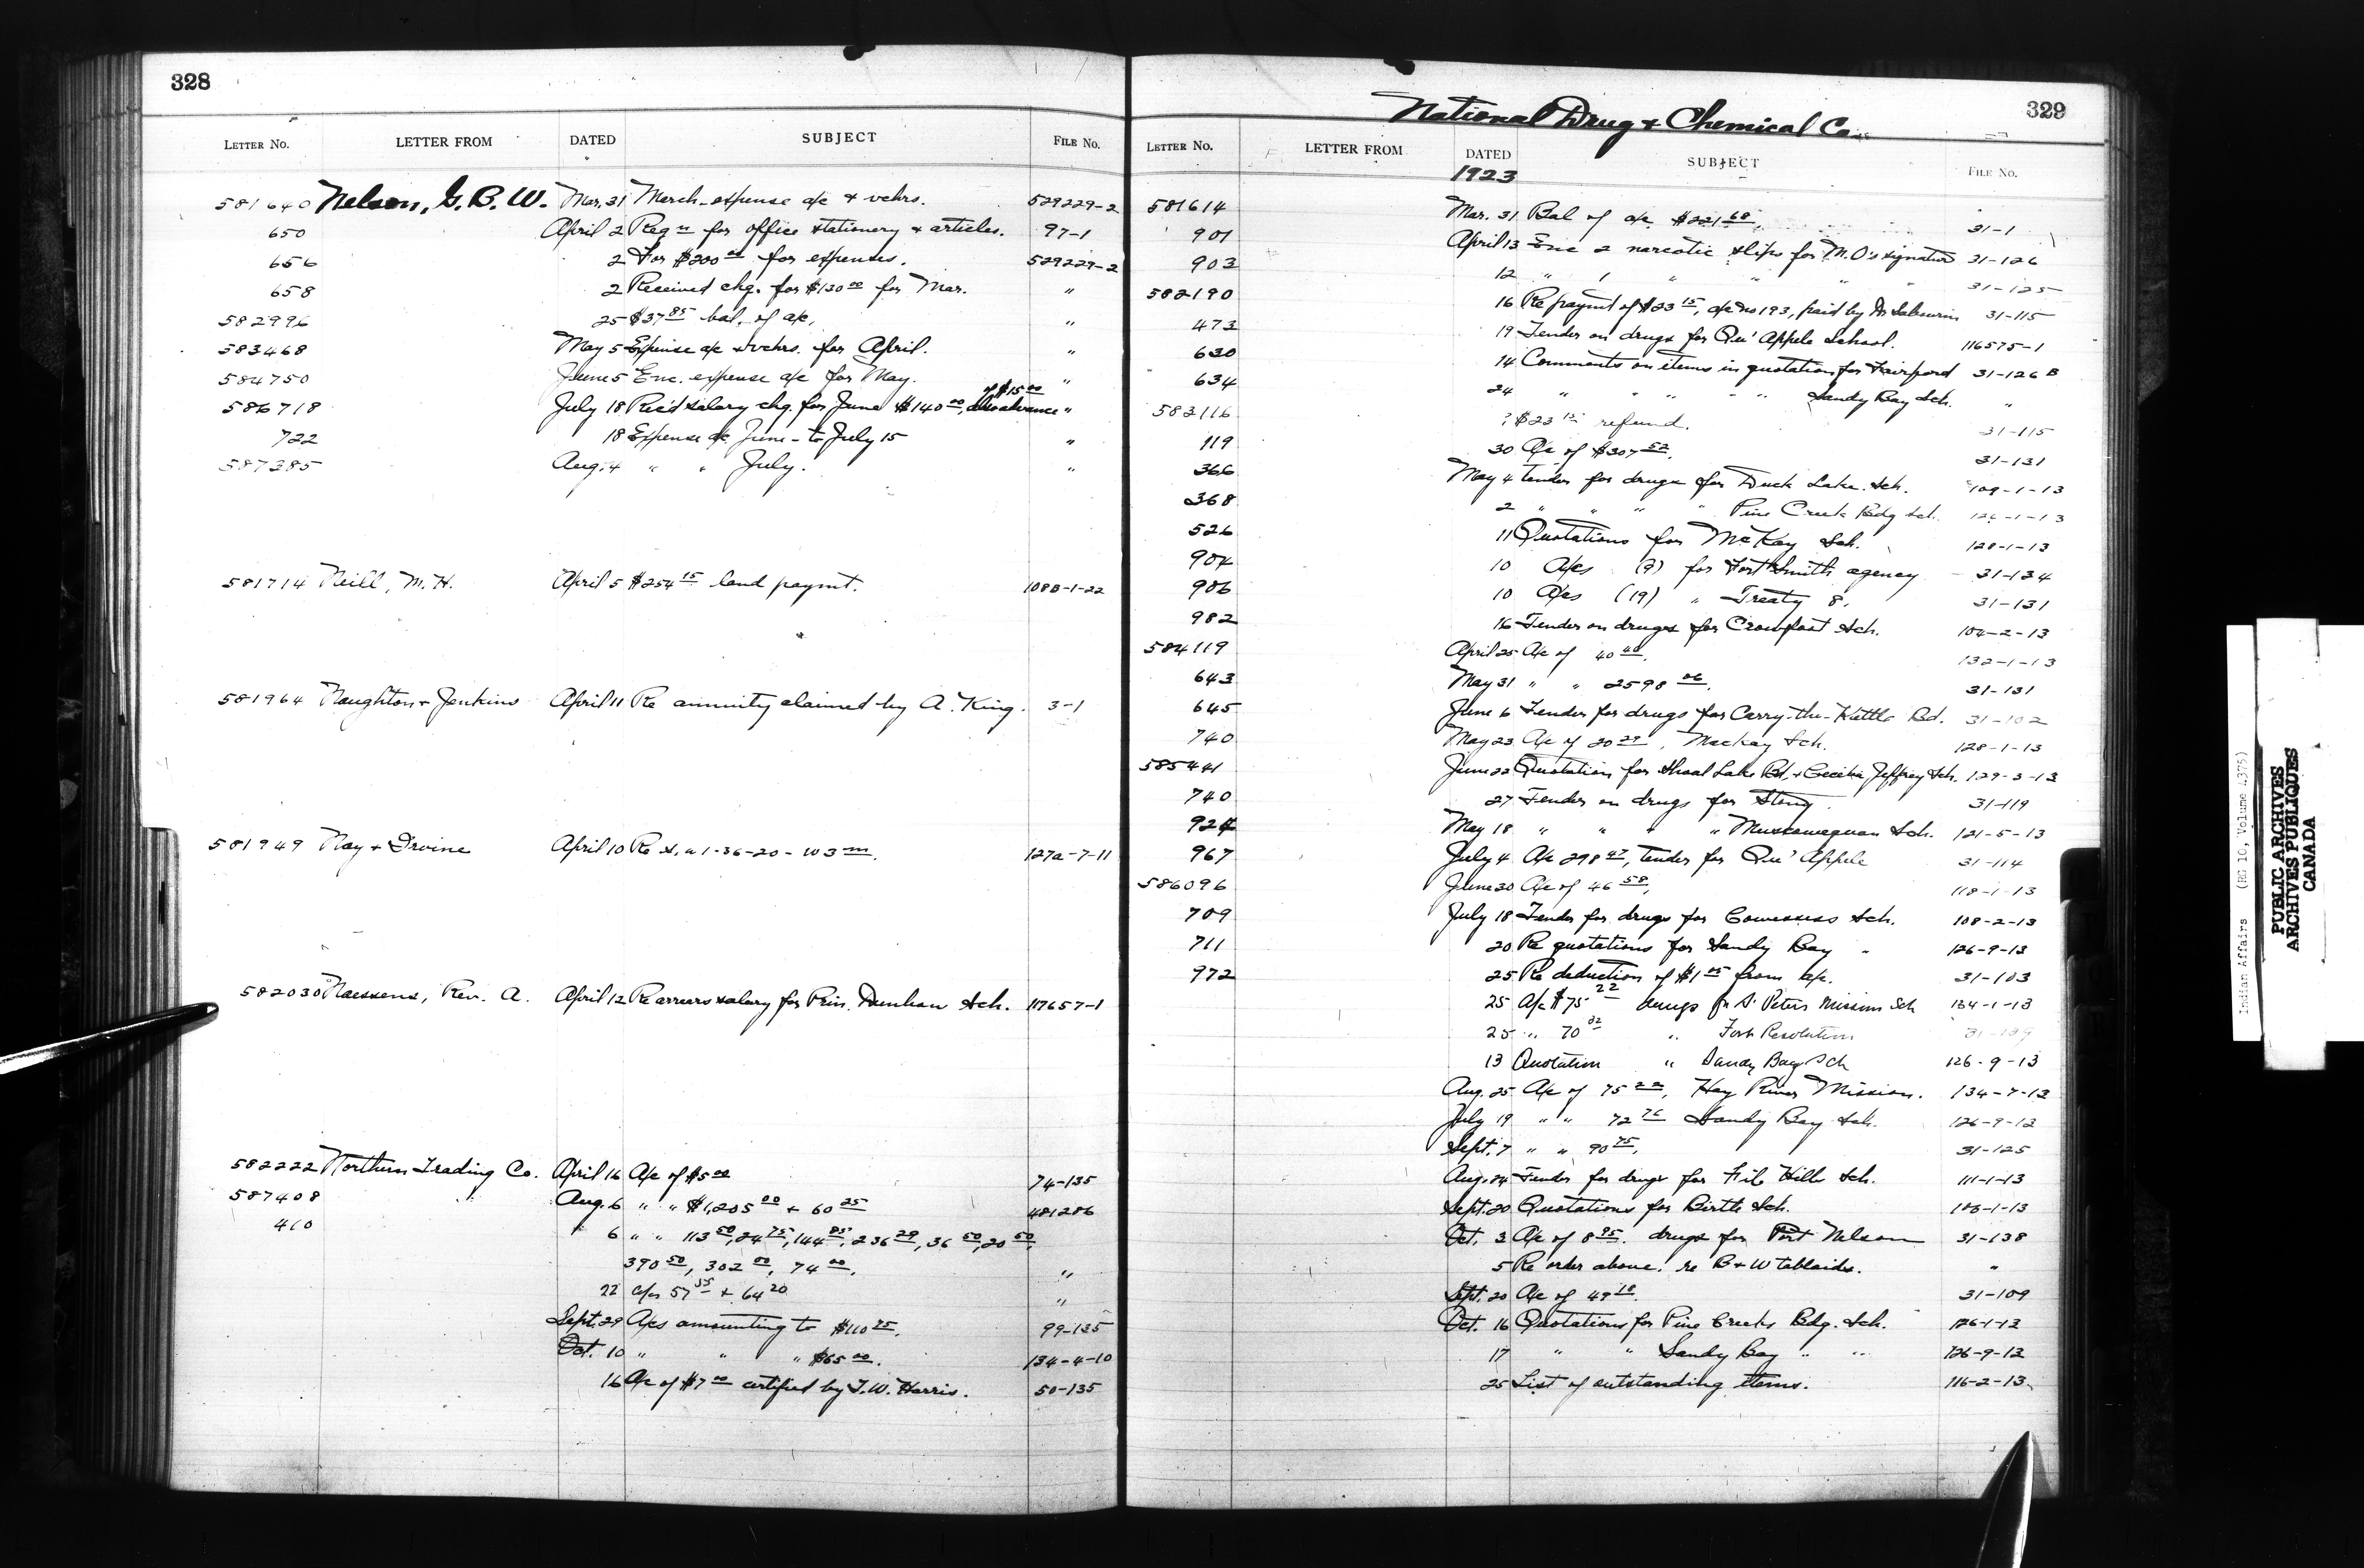 328
LETTER No. LETTER FROM DATED SUBJECT FILE No.
581640 Nelson, G. B. W. Mar. 31 March expense a/c & vchrs. 529229-2
650 April 2 Reqn for office stationery & articles. 97-1
656 2 For $200 00 for expenses. 529229-2
658 2 Received chq. for $130 00 for Mar. "
582996 25 $37 85 bal. of a/c. "
583468 May 5 Expense a/c & vchrs. for April. "
584750 June 5 Enc. expense a/c for May. "
of $15 00
586718 July 18 Rec'd salary chq. for June $140 00, also advance "
722 18 Expense a/c June - to July 15 "
587385 Aug. 4 " " July. "
581714 Neill, M. H. April 5 $254 15 land paymt. 108B-1-22
581964 Naughton & Jenkins April 11 Re annuity claimed by A. King. 3-1
581949 Nay & Irvine April 10 Re 1-36-20-W3 m. 127a-7-11
582030 Naessens, Rev. A. April 12 Re arrears salary for Prin. Dunbow Sch. 117657-1
582222 Northern Trading Co. April 16 A/c of $5 00 74-135
587408 Aug. 6 " " $1,205 00 & 60 25 481286
410 " 6 " " 113 50, 24 75, 144 85, 236 29, 36 50, 20 50,
390 50, 302 00, 74 00. "
22 a/cs 57 35 & 64 20 "
Sept. 29 A/cs amounting to $110 75. 99-135
Oct. 10 " " " $65 00. 134-4-10
16 A/c of $7 00 certified by T. W. Harris. 50-135
National Drug & Chemical Co.
329
LETTER No. LETTER FROM DATED SUBJECT FILE No.
1923
581614 Mar. 31 Bal of a/c $221 68. 31-1
901 April 13 Enc 2 narcotic slips for M.O's signature 31-126
903 12 " 1 " " " " 31-125
582190 16 Re paymt of $23 15, a/c no 193, paid by Dr 31-115
473 19 Tender on drugs for Qu'Appele School. 116575-1
630 14 Comments on items in quotation for Fairford 31-126 B
634 24 " " " " " Sandy Bay Sch. "
583116 ? $23 15 refund. 31-115
119 30 A/c of $307 52. 31-131
366 May 4 Tender for drugs for Duck Lake Sch. 109-1-13
368 2 " " " " Pine Creek Bdg Sch. 126-1-13
526 11 Quotations for McKay Sch. 128-1-13
904 10 A/cs (9) for Fort Smith agency 31-134
906 10 A/cs (19) " Treaty 8. 31-131
982 16 Tender on drugs for Crowfoot Sch. 104-2-13
584119 April 25 A/c of 40 40. 132-1-13
643 May 31 " " 2598 06. 31-131
645 June 6 Tender for drugs for Carry-the-Kettle Bd. 31-102
740 May 23 A/c of 20 29, Mackay Sch. 128-1-13
585441 June 22 Quotation for Shoal Lake Bd. & Cecilia Jeffrey Sch. 129-3-13
740 27 Tender on drugs for Stony. 31-119
924 May 18 " " " " Muscowequan Sch. 121-5-13
967 July 4 A/c 298 47, tender for Qu'Appele 31-114
586096 June 30 A/c of 46 58. 118-1-13
709 July 18 Tender for drugs for Cowessess Sch. 108-2-13
711 20 Re quotations for Sandy Bay " 126-9-13
972 25 Re deduction of $1 05 from a/c. 31-103
25 A/c $75 22 drugs for St Peters Mission Sch 134-1-13
25 " 70 32 " Fort Resolution
13 Quotation " Sandy Bay Sch 126-9-13
Aug. 25 A/c of 75 22, Hay River Mission. 134-7-13
July 19 " " 72 76 Sandy Bay Sch. 126-9-13
Sept. 7 " " 90 75. 31-125
Aug. 24 Tender for drugs for File Hills Sch. 111-1-13
Sept. 20 Quotations for Birtle Sch. 103-1-13
Oct. 3 A/c of 8 95. drugs for Port Nelson 31-138
5 Re order above. re B & W tabloids. "
Sept. 20 A/c of 49 18. 31-109
Oct. 16 Quotations for Pine Creek Bdg. Sch. 126-1-13
17 " " Sandy Bay " " 126-9-13
25 List of outstanding items. 116-2-13
Indian Affairs (RG 10, Volume 4375)
PUBLIC ARCHIVES
ARCHIVES PUBLIQUES
CANADA